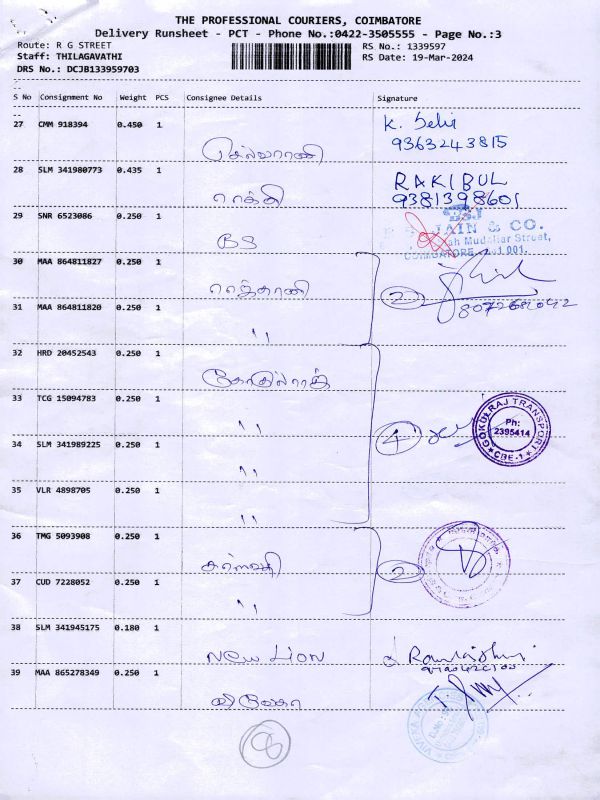 THE PROFESSIONAL COURIERS, COIMBATORE
Delivery Runsheet - PCT - Phone No.:0422-3505555 - Page No.:3
Route: R G STREET
RS No.: 1339597
Staff: THILAGAVATHI
RS Date: 19-Mar-2024
DRS No.: DCJB133959703
S No Consignment No Weight PCS Consignee Details Signature
27 CMM 918394 0.450 1 K. Selvi
செல்வராணி 9363243815
28 SLM 341980773 0.435 1 RAKIBUL
ராக்கி 9381398601
29 SNR 6523086 0.250 1 JAIN & CO.
BS Mudaliar Street,
COIMBATORE 001.
30 MAA 864811827 0.250 1
ராஜ்ராணி 2
31 MAA 864811820 0.250 1
"
32 HRD 20452543 0.250 1
கோகுல்ராஜ்
33 TCG 15094783 0.250 1
" 4 GOKULRAJ TRANSPORT Ph: 2395414 CBE-1
34 SLM 341989225 0.250 1
"
35 VLR 4898705 0.250 1
"
36 TMG 5093908 0.250 1
2
37 CUD 7228052 0.250 1
"
38 SLM 341945175 0.180 1
New Lion
39 MAA 865278349 0.250 1
விவேகா
8